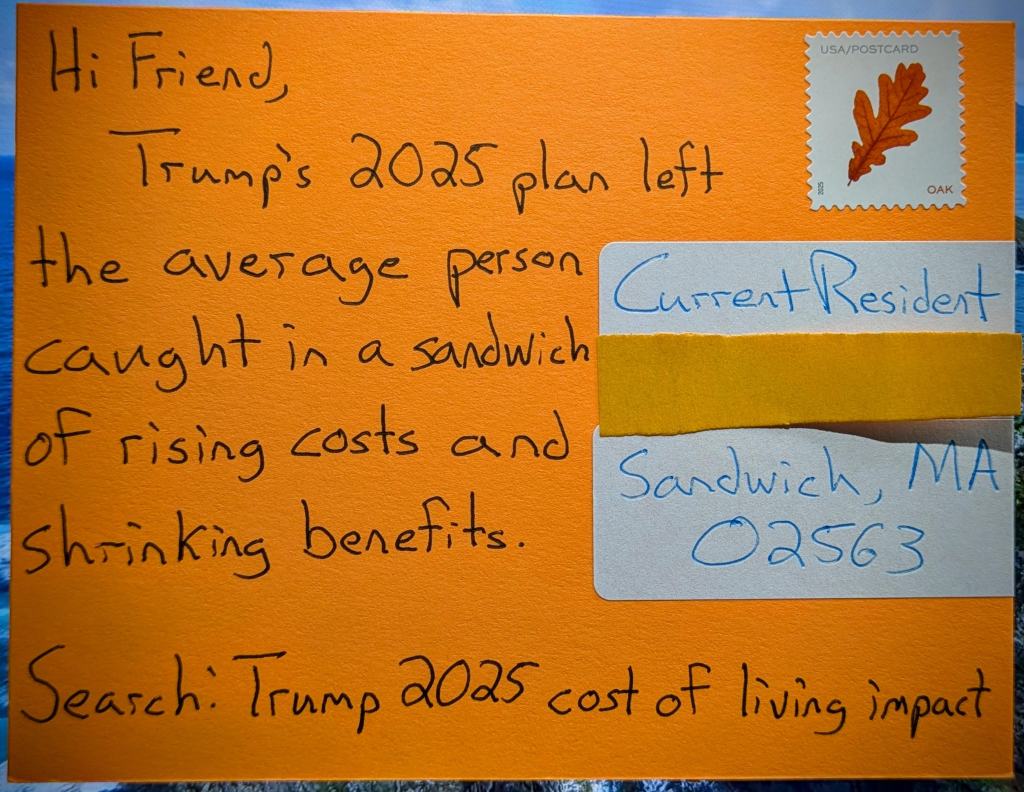 Hi Friend,
USA/POSTCARD
2025
OAK
Trump's 2025 plan left
the average person
caught in a sandwich
of rising costs and
shrinking benefits.
Current Resident
Sandwich, MA
02563
Search: Trump 2025 cost of living impact